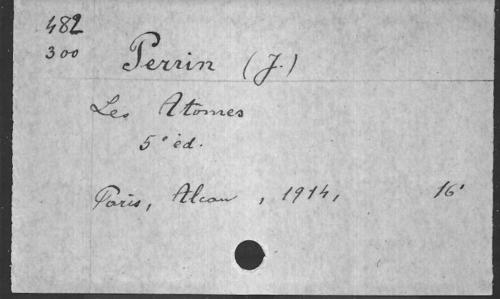 482
300
Perrin (J.)
Les Atomes
5e éd.
Paris, Alcan, 1914, 16°